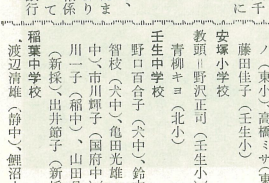 千に
ノ（東小）高橋ミサ（東
藤田佳子（壬生小）
安塚小学校
教頭＝野沢正司（壬生小
青柳キヨ（北小）
壬生中学校
野口百合子（犬中）、鈴
智枝（犬中）、亀田光雄
中）、市川輝子（国府中
川一子（稲中）、山田
（新採）、出井節子（新
稲葉中学校
渡辺清雄（静中）、鯉沼